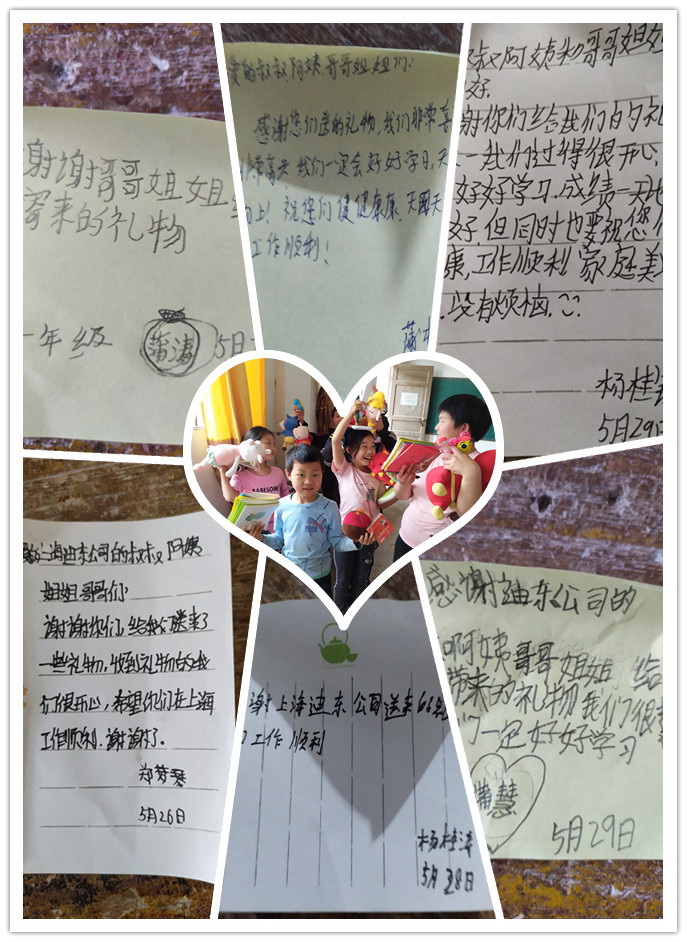 谢谢哥哥姐姐
寄来的礼物
一年级
蒲涛
5月
爱的叔叔阿姨哥哥姐姐们:
感谢您们送的礼物,我们非常喜
我们一定会好好学习,天
向上!祝您们健健康康,天天
工作顺利!
叔叔阿姨和哥哥姐姐
好.
谢你们给我们的礼
我们过得很开心,
好好学习.成绩一天比
好,但同时也要祝您们
康,工作顺利 家庭美
没有烦恼.
杨桂
5月29日
上海迪东公司的叔叔 阿姨
姐姐哥哥们:
谢谢你们,给我们送来了
一些礼物,收到礼物的我
们很开心,希望你们在上海
工作顺利.谢谢了.
郑梦琴
5月26日
谢上海迪东公司送来的礼
工作顺利
杨桂涛
5月28日
感谢迪东公司的
阿姨哥哥姐姐 给
带来的礼物我们很喜
们一定好好学习
蒲慧
5月29日
BABESOME